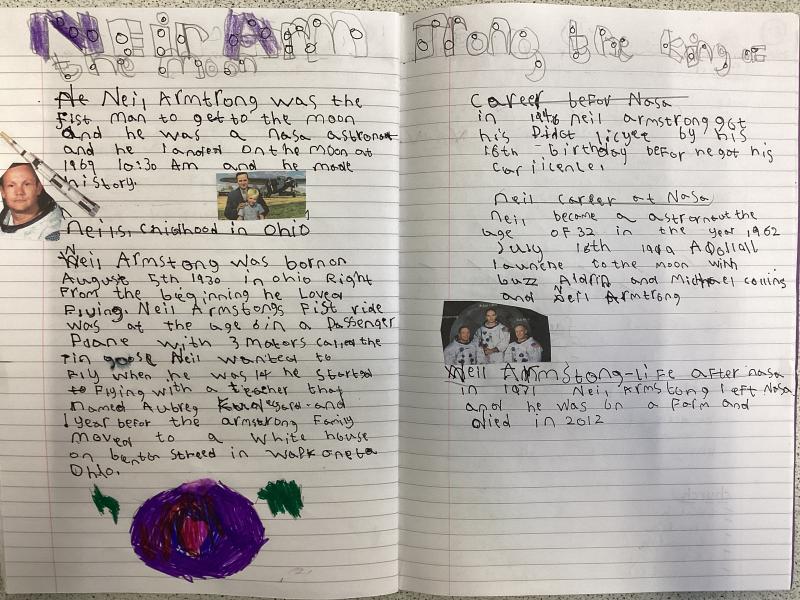 Neir Arm
the moon
He Neil Armtrong was the
Fist man to get to the moon
and he was a nasa astronaut
and he landed on the moon at
1969 10:30 Am and he made
history.
Neils, chidhood in Ohio
Neil Armstrong was born on
August 5th 1930 in ohio Right
From the beginning he Loved
Flying. Neil Armstrongs Fist ride
was at the age 6 in a Passenger
Plane with 3 Motors called the
Tin goose Neil wanted to
Fly when he was 14 he started
to Flying with a teacher that
named Aubrey and
1 year befor the armstrong Family
moved to a white house
on benton streed in
Ohio.
Strong the king of
Career befor Nasa
in 1946 neil armstrong got
his by his
16th birthday befor he got his
car licence.
neil career at Nasa
neil became a astronaut the
age OF 32 in the year 1962
July 16th 1969
launche to the moon with
buzz Aldrin and Michael collins
and Neil Armtrong
Neil Armstong-liFe aFter nasa
in 1971 Neil Armstrong left Nasa
and he was on a Farm and
died in 2012